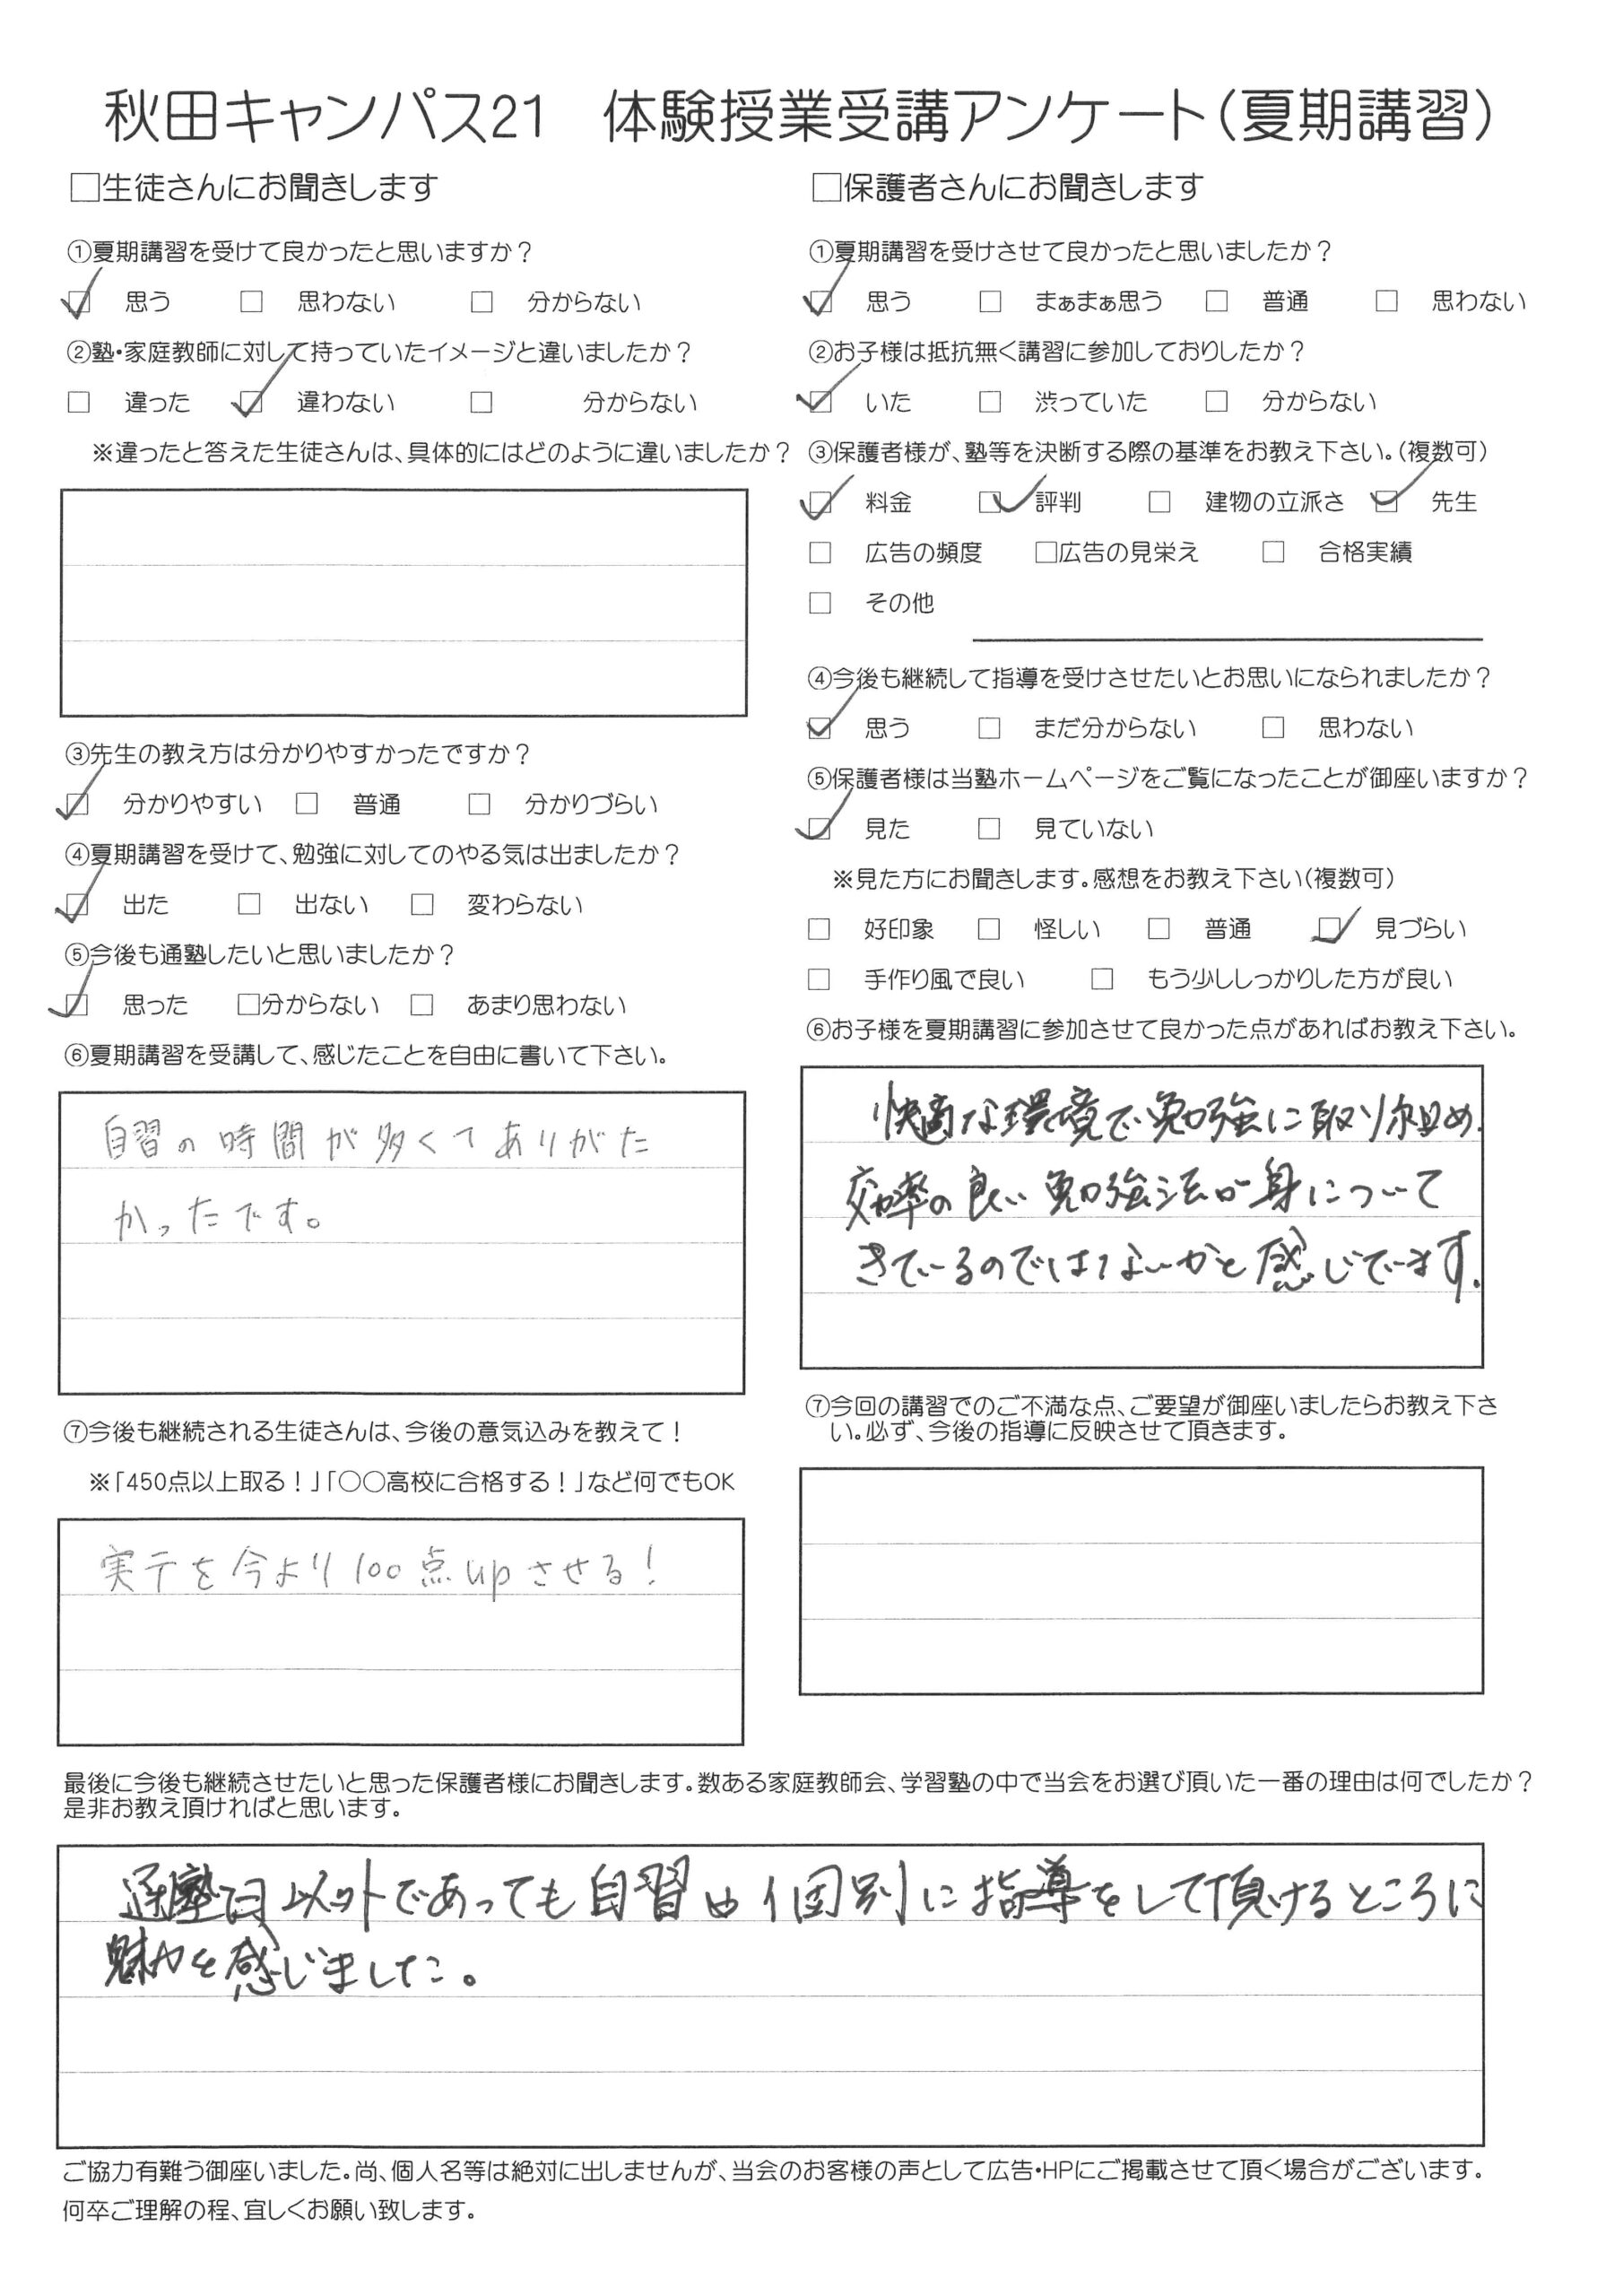 秋田キャンパス21　体験授業受講アンケート（夏期講習）
□生徒さんにお聞きします
①夏期講習を受けて良かったと思いますか？
☑ 思う □ 思わない □ 分からない
②塾・家庭教師に対して持っていたイメージと違いましたか？
□ 違った ☑ 違わない □ 分からない
※違ったと答えた生徒さんは、具体的にはどのように違いましたか？
③先生の教え方は分かりやすかったですか？
☑ 分かりやすい □ 普通 □ 分かりづらい
④夏期講習を受けて、勉強に対してのやる気は出ましたか？
☑ 出た □ 出ない □ 変わらない
⑤今後も通塾したいと思いましたか？
☑ 思った □分からない □ あまり思わない
⑥夏期講習を受講して、感じたことを自由に書いて下さい。
自習の時間が多くてありがた
かったです。
⑦今後も継続される生徒さんは、今後の意気込みを教えて！
※「450点以上取る！」「○○高校に合格する！」など何でもOK
実テを今より100点upさせる！
□保護者さんにお聞きします
①夏期講習を受けさせて良かったと思いましたか？
☑ 思う □ まぁまぁ思う □ 普通 □ 思わない
②お子様は抵抗無く講習に参加しておりしたか？
☑ いた □ 渋っていた □ 分からない
③保護者様が、塾等を決断する際の基準をお教え下さい。（複数可）
☑ 料金 ☑ 評判 □ 建物の立派さ ☑ 先生
□ 広告の頻度 □広告の見栄え □ 合格実績
□ その他
④今後も継続して指導を受けさせたいとお思いになられましたか？
☑ 思う □ まだ分からない □ 思わない
⑤保護者様は当塾ホームページをご覧になったことが御座いますか？
☑ 見た □ 見ていない
※見た方にお聞きします。感想をお教え下さい（複数可）
□ 好印象 □ 怪しい □ 普通 ☑ 見づらい
□ 手作り風で良い □ もう少ししっかりした方が良い
⑥お子様を夏期講習に参加させて良かった点があればお教え下さい。
快適な環境で勉強に取り組め、
効率の良い勉強法が身について
きているのではないかと感じています。
⑦今回の講習でのご不満な点、ご要望が御座いましたらお教え下さ
い。必ず、今後の指導に反映させて頂きます。
最後に今後も継続させたいと思った保護者様にお聞きします。数ある家庭教師会、学習塾の中で当会をお選び頂いた一番の理由は何でしたか？
是非お教え頂ければと思います。
通塾日以外であっても自習や個別に指導をして頂けるところに
魅力を感じました。
ご協力有難う御座いました。尚、個人名等は絶対に出しませんが、当会のお客様の声として広告・HPにご掲載させて頂く場合がございます。
何卒ご理解の程、宜しくお願い致します。